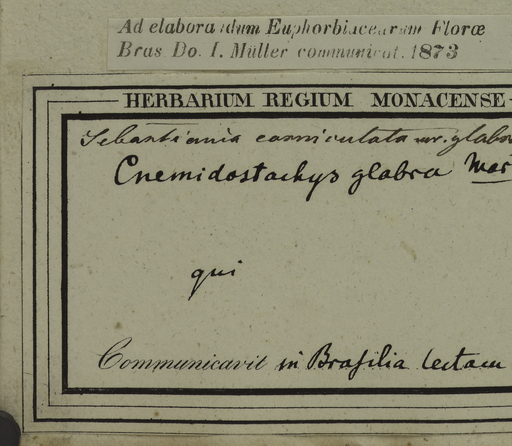 Ad elaborandum Euphorbiacearum Floræ
Bras Do. I. Müller communicat. 1873
HERBARIUM REGIUM MONACENSE
Sebastiania corniculata var. glabra
Cnemidostachys glabra Mar
qui
Communicavit in Brasilia lectam